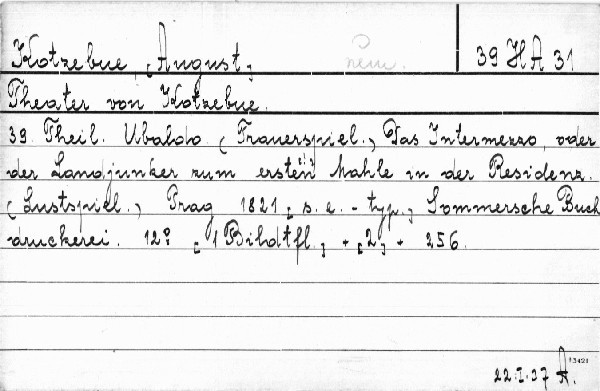 Kotzebue, [August] něm. 39 HA 31
Theater von Kotzebue.
39. Theil. Ubaldo. (Trauerspiel.) Das Intermezzo, oder
der Landjunker zum ersten [!] Mahle in der Residenz.
(Lustspiel.) Prag 1821 [s. e. - typ.] Sommersche Buch
druckerei. 12° [1 Bildtfl.] + [2] + 256.
13421
22.I.37 A.